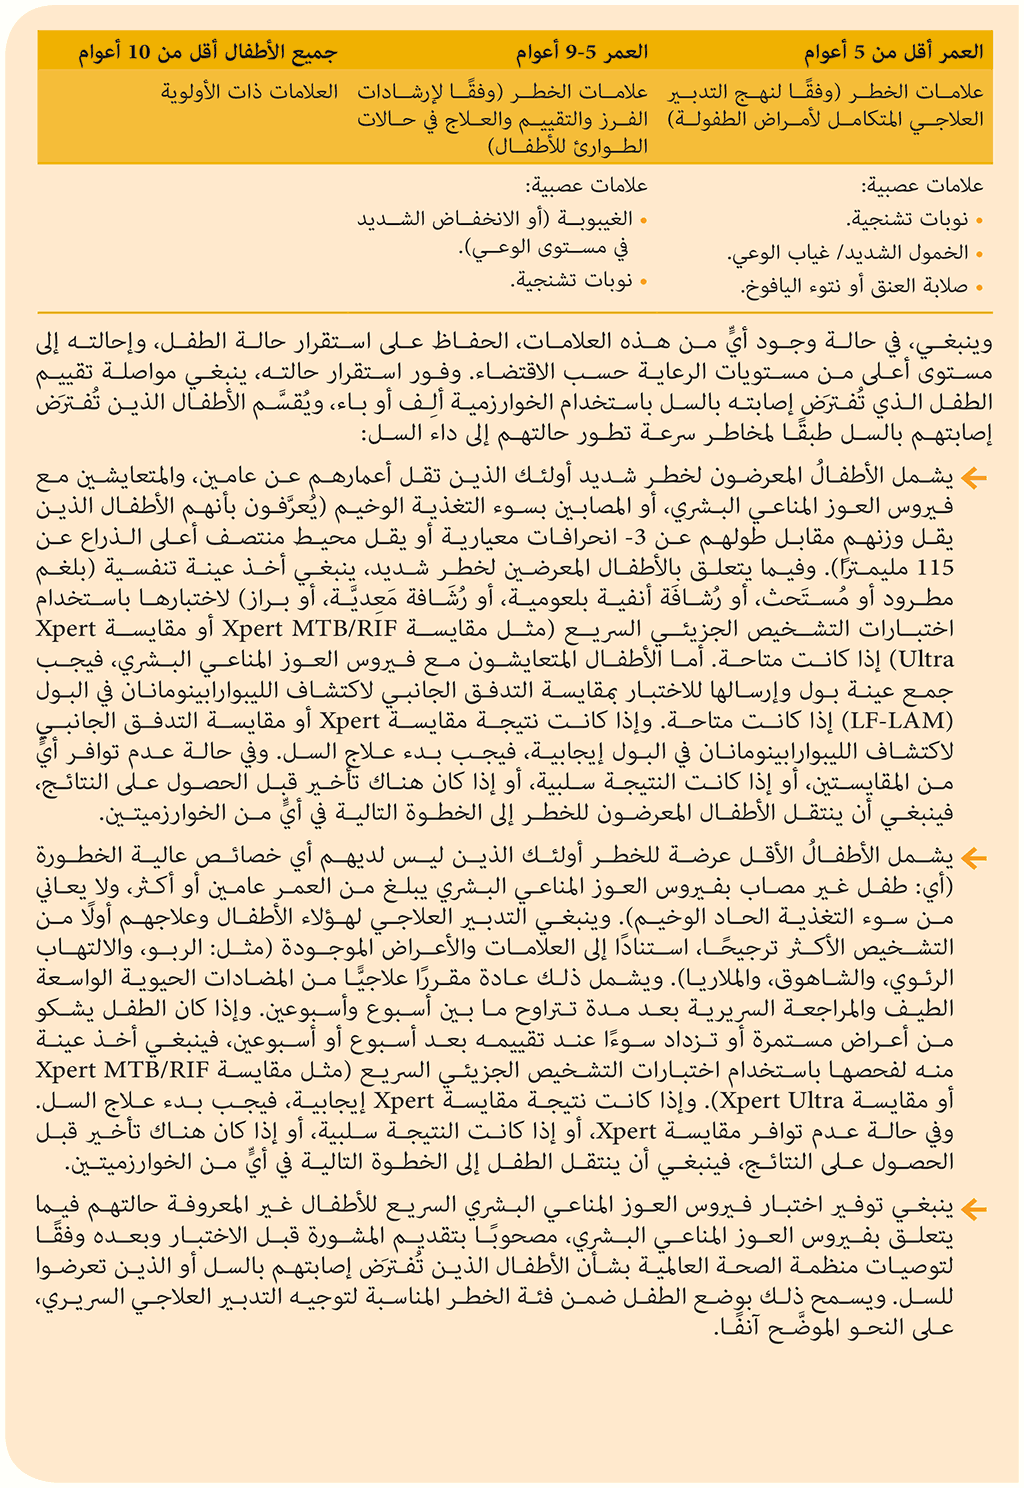 العمر أقل من 5 أعوام	العمر 5-9 أعوام	جميع الأطفال أقل من 10 أعوام
علامات الخطر (وفقًا لنهج التدبير العلاجي المتكامل لأمراض الطفولة)	علامات الخطر (وفقًا لإرشادات الفرز والتقييم والعلاج في حالات الطوارئ للأطفال)	العلامات ذات الأولوية
علامات عصبية:
• نوبات تشنجية.
• الخمول الشديد/ غياب الوعي.
• صلابة العنق أو نتوء اليافوخ.
علامات عصبية:
• الغيبوبة (أو الانخفاض الشديد
في مستوى الوعي).
• نوبات تشنجية.
وينبغي، في حالة وجود أيٍّ من هذه العلامات، الحفاظ على استقرار حالة الطفل، وإحالته إلى
مستوى أعلى من مستويات الرعاية حسب الاقتضاء. وفور استقرار حالته، ينبغي مواصلة تقييم
الطفل الذي تُفترَض إصابته بالسل باستخدام الخوارزمية ألِف أو باء، ويُقسَّم الأطفال الذين تُفترَض
إصابتهم بالسل طبقًا لمخاطر سرعة تطور حالتهم إلى داء السل:
← يشمل الأطفالُ المعرضون لخطر شديد أولئك الذين تقل أعمارهم عن عامين، والمتعايشين مع
فيروس العوز المناعي البشري، أو المصابين بسوء التغذية الوخيم (يُعرَّفون بأنهم الأطفال الذين
يقل وزنهم مقابل طولهم عن 3- انحرافات معيارية أو يقل محيط منتصف أعلى الذراع عن
115 مليمترًا). وفيما يتعلق بالأطفال المعرضين لخطر شديد، ينبغي أخذ عينة تنفسية (بلغم
مطرود أو مُستَحث، أو رُشافَة أنفية بلعومية، أو رُشَافة مَعِديَّة، أو براز) لاختبارها باستخدام
اختبارات التشخيص الجزيئي السريع (مثل مقايسة Xpert MTB/RIF أو مقايسة Xpert
Ultra) إذا كانت متاحة. أما الأطفال المتعايشون مع فيروس العوز المناعي البشري، فيجب
جمع عينة بول وإرسالها للاختبار بمقايسة التدفق الجانبي لاكتشاف الليبوارابينومانان في البول
(LF-LAM) إذا كانت متاحة. وإذا كانت نتيجة مقايسة Xpert أو مقايسة التدفق الجانبي
لاكتشاف الليبوارابينومانان في البول إيجابية، فيجب بدء علاج السل. وفي حالة عدم توافر أيٍّ
من المقايستين، أو إذا كانت النتيجة سلبية، أو إذا كان هناك تأخير قبل الحصول على النتائج،
فينبغي أن ينتقل الأطفال المعرضون للخطر إلى الخطوة التالية في أيٍّ من الخوارزميتين.
← يشمل الأطفالُ الأقل عرضة للخطر أولئك الذين ليس لديهم أي خصائص عالية الخطورة
(أي: طفل غير مصاب بفيروس العوز المناعي البشري يبلغ من العمر عامين أو أكثر، ولا يعاني
من سوء التغذية الحاد الوخيم). وينبغي التدبير العلاجي لهؤلاء الأطفال وعلاجهم أولًا من
التشخيص الأكثر ترجيحًا، استنادًا إلى العلامات والأعراض الموجودة (مثل: الربو، والالتهاب
الرئوي، والشاهوق، والملاريا). ويشمل ذلك عادة مقررًا علاجيًّا من المضادات الحيوية الواسعة
الطيف والمراجعة السريرية بعد مدة تتراوح ما بين أسبوع وأسبوعين. وإذا كان الطفل يشكو
من أعراض مستمرة أو تزداد سوءًا عند تقييمه بعد أسبوع أو أسبوعين، فينبغي أخذ عينة
منه لفحصها باستخدام اختبارات التشخيص الجزيئي السريع (مثل مقايسة Xpert MTB/RIF
أو مقايسة Xpert Ultra). وإذا كانت نتيجة مقايسة Xpert إيجابية، فيجب بدء علاج السل.
وفي حالة عدم توافر مقايسة Xpert، أو إذا كانت النتيجة سلبية، أو إذا كان هناك تأخير قبل
الحصول على النتائج، فينبغي أن ينتقل الطفل إلى الخطوة التالية في أيٍّ من الخوارزميتين.
← ينبغي توفير اختبار فيروس العوز المناعي البشري السريع للأطفال غير المعروفة حالتهم فيما
يتعلق بفيروس العوز المناعي البشري، مصحوبًا بتقديم المشورة قبل الاختبار وبعده وفقًا
لتوصيات منظمة الصحة العالمية بشأن الأطفال الذين تُفترَض إصابتهم بالسل أو الذين تعرضوا
للسل. ويسمح ذلك بوضع الطفل ضمن فئة الخطر المناسبة لتوجيه التدبير العلاجي السريري،
على النحو الموضَّح آنفًا.